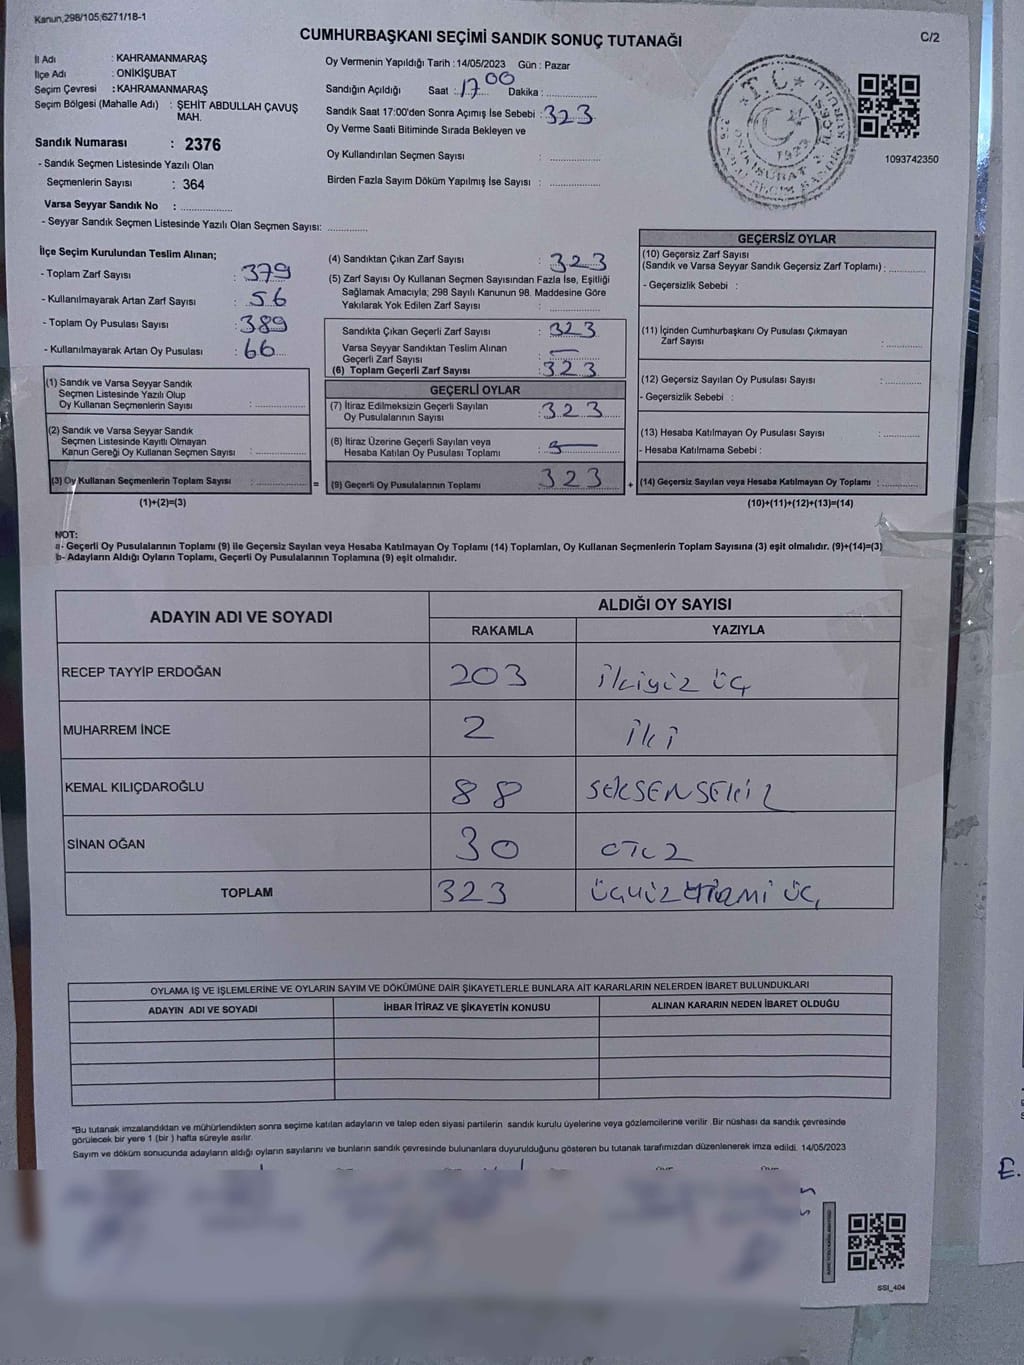 Kanun,298/105;6271/18-1
CUMHURBAŞKANI SEÇİMİ SANDIK SONUÇ TUTANAĞI
C/2
İl Adı : KAHRAMANMARAŞ
İlçe Adı : ONİKİŞUBAT
Seçim Çevresi : KAHRAMANMARAŞ
Seçim Bölgesi (Mahalle Adı) : ŞEHİT ABDULLAH ÇAVUŞ
MAH.
Sandık Numarası : 2376
- Sandık Seçmen Listesinde Yazılı Olan
Seçmenlerin Sayısı : 364
Varsa Seyyar Sandık No : ..................
- Seyyar Sandık Seçmen Listesinde Yazılı Olan Seçmen Sayısı: ..............
Oy Vermenin Yapıldığı Tarih : 14/05/2023 Gün : Pazar
Sandığın Açıldığı Saat : 17 00 Dakika : ..............
Sandık Saat 17:00'den Sonra Açımış İse Sebebi : 323
Oy Verme Saati Bitiminde Sırada Bekleyen ve
Oy Kullandırılan Seçmen Sayısı : ..................
Birden Fazla Sayım Döküm Yapılmış İse Sayısı : ..................
T.C.
1093742350
İlçe Seçim Kurulundan Teslim Alınan;
- Toplam Zarf Sayısı : 379
- Kullanılmayarak Artan Zarf Sayısı : 56
- Toplam Oy Pusulası Sayısı : 389
- Kullanılmayarak Artan Oy Pusulası : 66
(1) Sandık ve Varsa Seyyar Sandık
Seçmen Listesinde Yazılı Olup
Oy Kullanan Seçmenlerin Sayısı : ..................
(2) Sandık ve Varsa Seyyar Sandık
Seçmen Listesinde Kayıtlı Olmayan
Kanun Gereği Oy Kullanan Seçmen Sayısı : ..................
(3) Oy Kullanan Seçmenlerin Toplam Sayısı : ..................
(1)+(2)=(3)
(4) Sandıktan Çıkan Zarf Sayısı : 323
(5) Zarf Sayısı Oy Kullanan Seçmen Sayısından Fazla İse, Eşitliği
Sağlamak Amacıyla; 298 Sayılı Kanunun 98. Maddesine Göre
Yakılarak Yok Edilen Zarf Sayısı : ..................
Sandıkta Çıkan Geçerli Zarf Sayısı : 323
Varsa Seyyar Sandıktan Teslim Alınan
Geçerli Zarf Sayısı : —
(6) Toplam Geçerli Zarf Sayısı : 323
GEÇERLİ OYLAR
(7) İtiraz Edilmeksizin Geçerli Sayılan
Oy Pusulalarının Sayısı : 323
(8) İtiraz Üzerine Geçerli Sayılan veya
Hesaba Katılan Oy Pusulası Toplamı :
= (9) Geçerli Oy Pusulalarının Toplamı : 323
GEÇERSİZ OYLAR
(10) Geçersiz Zarf Sayısı
(Sandık ve Varsa Seyyar Sandık Geçersiz Zarf Toplamı) : ............
- Geçersizlik Sebebi :
(11) İçinden Cumhurbaşkanı Oy Pusulası Çıkmayan
Zarf Sayısı : ............
(12) Geçersiz Sayılan Oy Pusulası Sayısı : ............
- Geçersizlik Sebebi :
(13) Hesaba Katılmayan Oy Pusulası Sayısı : ............
- Hesaba Katılmama Sebebi :
+ (14) Geçersiz Sayılan veya Hesaba Katılmayan Oy Toplamı : ............
(10)+(11)+(12)+(13)=(14)
NOT:
a- Geçerli Oy Pusulalarının Toplamı (9) ile Geçersiz Sayılan veya Hesaba Katılmayan Oy Toplamı (14) Toplamları, Oy Kullanan Seçmenlerin Toplam Sayısına (3) eşit olmalıdır. (9)+(14)=(3)
b- Adayların Aldığı Oyların Toplamı, Geçerli Oy Pusulalarının Toplamına (9) eşit olmalıdır.
ADAYIN ADI VE SOYADI
ALDIĞI OY SAYISI
RAKAMLA YAZIYLA
RECEP TAYYİP ERDOĞAN 203 ikiyüz üç
MUHARREM İNCE 2 iki
KEMAL KILIÇDAROĞLU 88 SEKSENSEKİZ
SİNAN OĞAN 30 OTUZ
TOPLAM 323
OYLAMA İŞ VE İŞLEMLERİNE VE OYLARIN SAYIM VE DÖKÜMÜNE DAİR ŞİKAYETLERLE BUNLARA AİT KARARLARIN NELERDEN İBARET BULUNDUKLARI
ADAYIN ADI VE SOYADI İHBAR İTİRAZ VE ŞİKAYETİN KONUSU ALINAN KARARIN NEDEN İBARET OLDUĞU
"Bu tutanak imzalandıktan ve mühürlendikten sonra seçime katılan adayların ve talep eden siyasi partilerin sandık kurulu üyelerine veya gözlemcilerine verilir. Bir nüshası da sandık çevresinde
görülecek bir yere 1 (bir ) hafta süreyle asılır.
Sayım ve döküm sonucunda adayların aldığı oyların sayılarını ve bunların sandık çevresinde bulunanlara duyurulduğunu gösteren bu tutanak tarafımızdan düzenlenerek imza edildi. 14/05/2023
SSI_404
E.